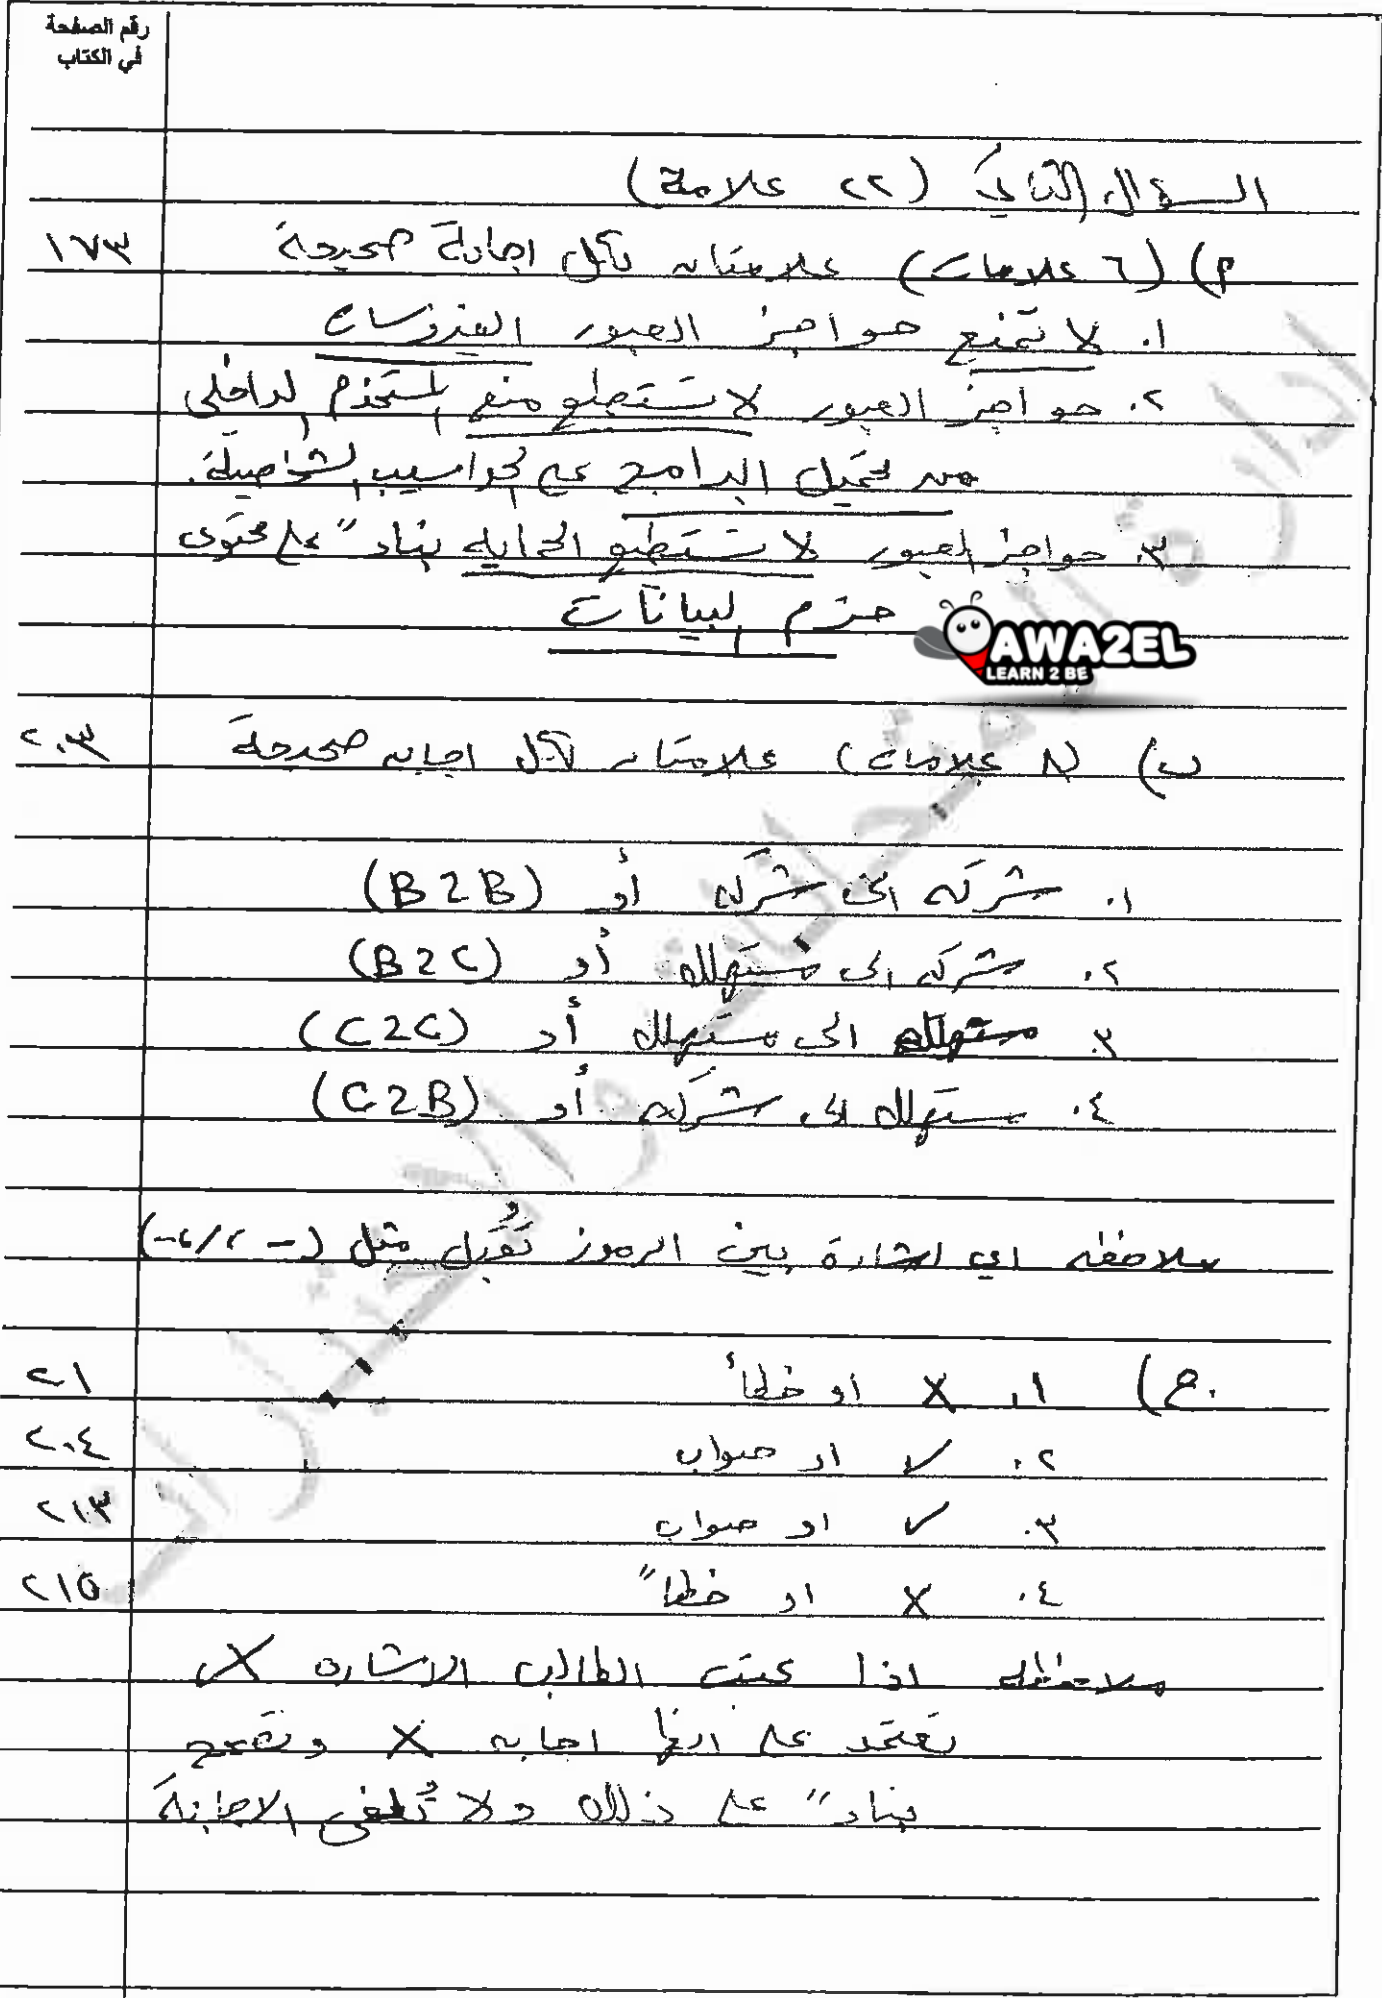 رقم الصفحة
في الكتاب
السؤال الثاني (٢٢ علامة)
أ) (٦ علامات) علامتان لكل اجابة صحيحة ١٧٣
١. لا تمنع حواجز العبور الفيروسات
٢. حواجز العبور لا تستطيع منع المستخدم الداخلي
من تحميل البرامج على الحواسيب الشخصية.
٣. حواجز العبور لا تستطيع الحماية بناء" على محتوى
حزم البيانات
AWA2EL
LEARN 2 BE
ب) (٨ علامات) علامتان لكل اجابه صحيحة ٢٠٣
١. شركه الى شركه أو (B2B)
٢. شركه الى مستهلك أو (B2C)
٣. مستهلك الى مستهلك أو (C2C)
٤. مستهلك الى شركه أو (C2B)
ملاحظه اي اشارة بين الرموز تُقبل مثل
ج) ١. X او خطأ ٢١
٢. ✓ او صواب ٢٠٤
٣. ✓ او صواب ٢١٣
٤. X او خطا" ٢١٥
ملاحظه اذا كتب الطالب الاشاره
تعتمد على انها اجابه X وتصحح
بناء" على ذلك ولا تُلغى الاجابة